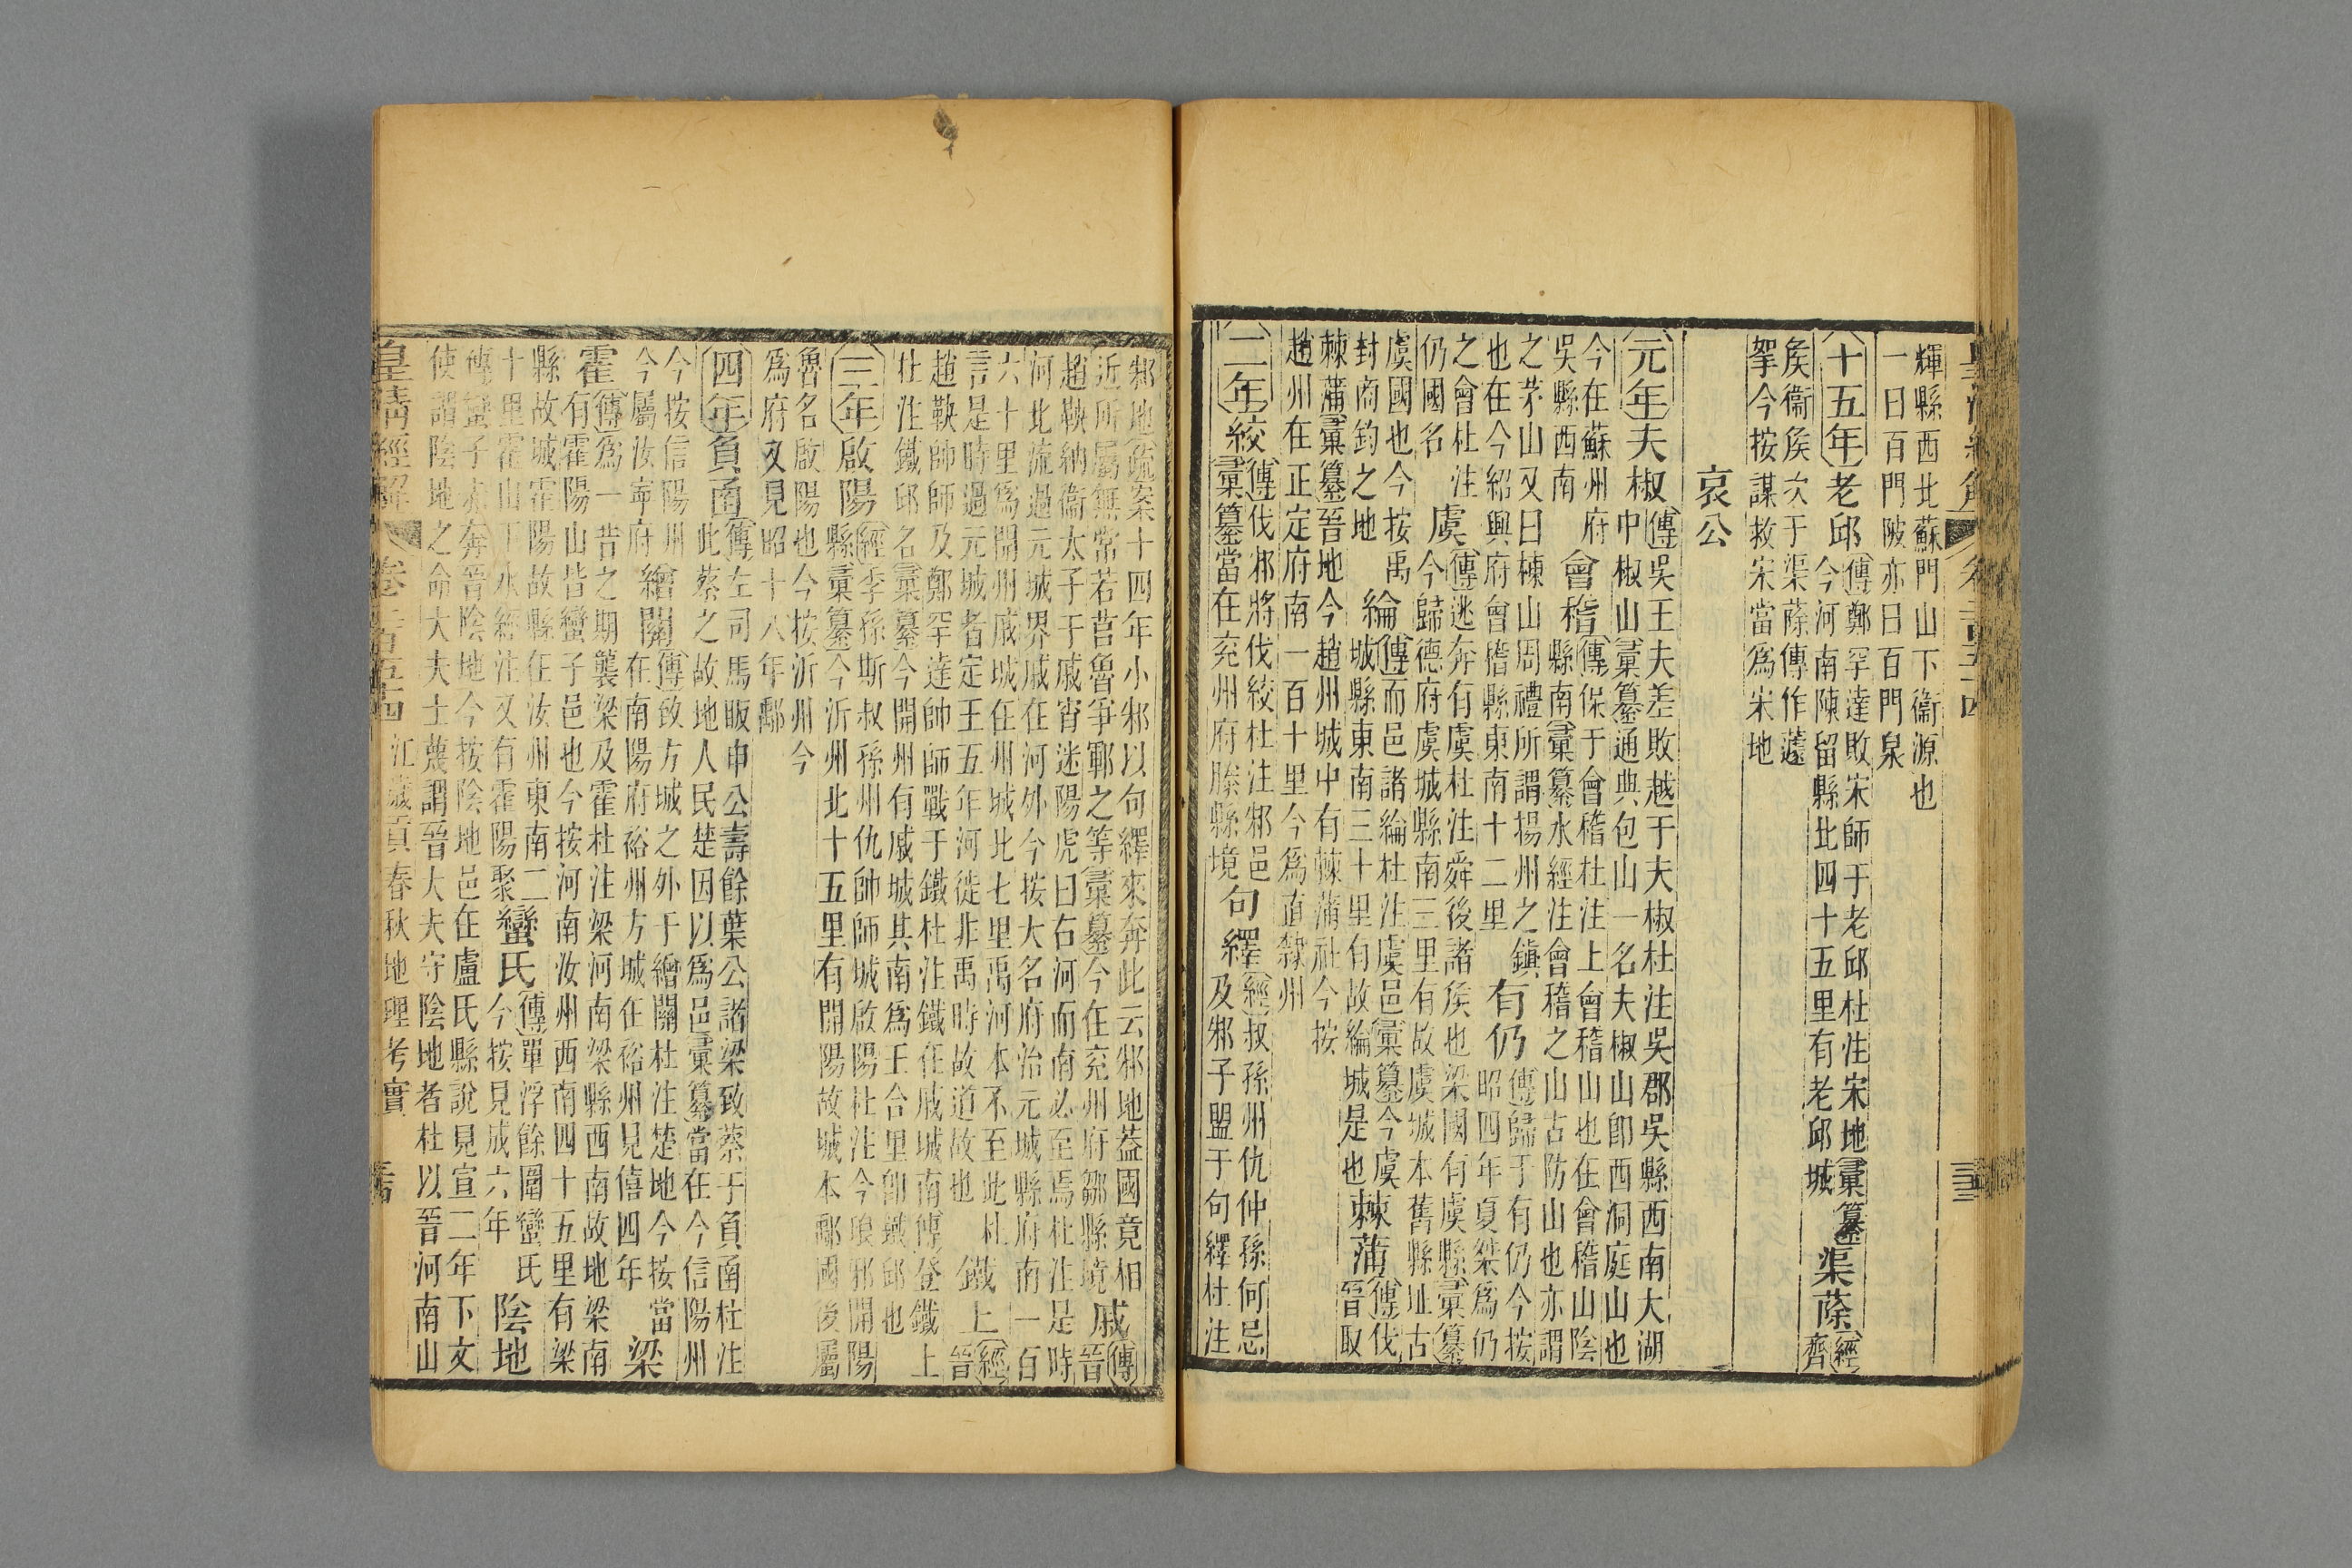 輝縣西北蘇門山下衞源也
一曰百門陂亦曰百門泉
十五年老邱
傳鄭罕達敗宋師于老邱杜注宋地彙纂
今河南陳留縣北四十五里有老邱城
渠蒢
經
齊
矦衞矦次于渠蒢傳作蘧
挐今按謀救宋當爲宋地
哀公
元年夫椒
傳吳王夫差敗越于夫椒杜注吳郡吳縣西南大湖
中椒山彙纂通典包山一名夫椒山卽西洞庭山也
今在蘇州府
吳縣西南
會稽
傳保于會稽杜注上會稽山也在會稽山陰
縣南彙纂水經注會稽之山古防山也亦謂
之茅山又曰棟山周禮所謂揚州之鎮
也在今紹興府會稽縣東南十二里
有仍
傳歸于有仍今按
昭四年夏桀爲仍
之會杜注
仍國名
虞
傳逃奔有虞杜注舜後諸矦也梁國有虞縣彙纂
今歸德府虞城縣南三里有故虞城本舊縣址古
虞國也今按禹
封商鈞之地
綸
傳而邑諸綸杜注虞邑彙纂今虞
城縣東南三十里有故綸城是也
棘蒲
傳伐
晉取
棘蒲彙纂晉地今趙州城中有棘蒲社今按
趙州在正定府南一百十里今爲直隸州
二年絞
傳伐邾將伐絞杜注邾邑
彙纂當在兖州府滕縣境
句繹
經叔孫州仇仲孫何忌
及邾子盟于句繹杜注
邾地疏案十四年小邾以句繹來奔此云邾地蓋國竟相
近所屬無常若莒魯爭鄆之等彙纂今在兖州府鄒縣境
戚
傳
晉
趙鞅納衞太子于戚宵迷陽虎曰右河而南必至焉杜注是時
河北流過元城界戚在河外今按大名府治元城縣府南一百
六十里爲開州戚城在州城北七里禹河本不至此杜
言是時過元城者定王五年河徙非禹時故道故也
鐵上
經
晉
趙鞅帥師及鄭罕達帥師戰于鐵杜注鐵在戚城南傳登鐵上
杜注鐵邱名彙纂今開州有戚城其南爲王合里卽鐵邱也
三年啟陽
經季孫斯叔孫州仇帥師城啟陽杜注今琅邪開陽
縣彙纂今沂州北十五里有開陽故城本鄅國後屬
魯名啟陽也今按沂州今
爲府又見昭十八年鄅
四年負函
傳左司馬眅申公壽餘葉公諸梁致蔡于負函杜注
此蔡之故地人民楚因以爲邑彙纂當在今信陽州
今按信陽州
今屬汝寧府
繒關
傳致方城之外于繒關杜注楚地今按當
在南陽府裕州方城在裕州見僖四年
梁
霍
傳爲一昔之期襲梁及霍杜注梁河南梁縣西南故地梁南
有霍陽山皆蠻子邑也今按河南汝州西南四十五里有梁
縣故城霍陽故縣在汝州東南二
十里霍山下水經注又有霍陽聚
蠻氏
傳單浮餘圍蠻氏
今按見成六年
陰地
傳蠻子赤奔晉陰地今按陰地邑在盧氏縣說見宣二年下文
使謂陰地之命大夫士蔑謂晉大夫守陰地者杜以晉河南山
皇清經解
江歲貢春秋地理考實